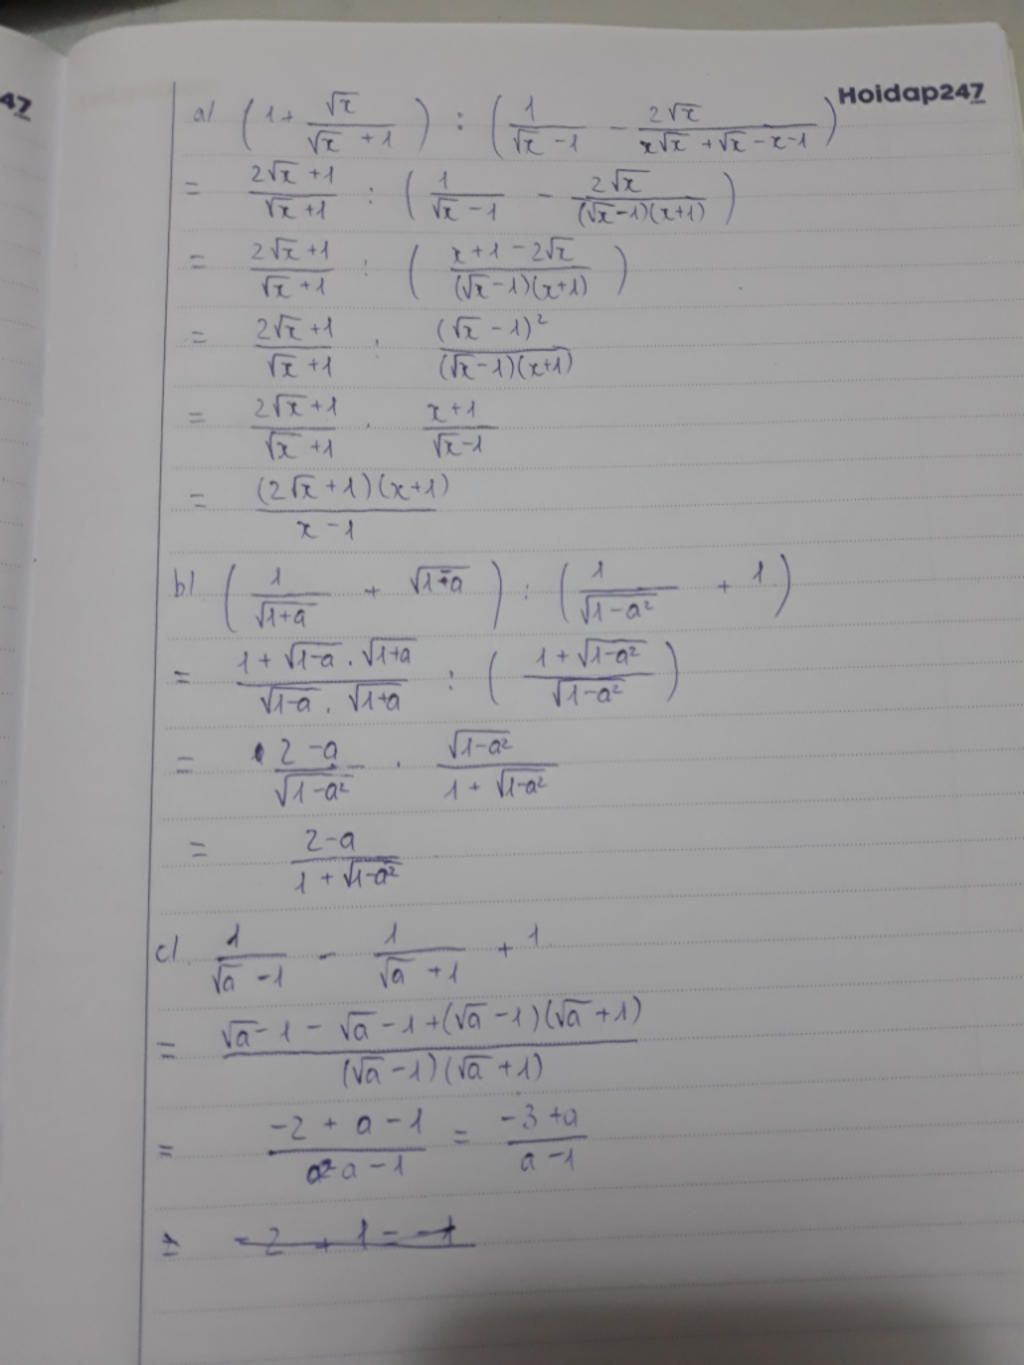 47
Hoidap247
a) (1 + √x/(√x + 1)) : (1/(√x - 1) - 2√x/(x√x + √x - x - 1))
= (2√x + 1)/(√x + 1) : (1/(√x - 1) - 2√x/((√x - 1)(x + 1)))
= (2√x + 1)/(√x + 1) : ((x + 1 - 2√x)/((√x - 1)(x + 1)))
= (2√x + 1)/(√x + 1) : (√x - 1)²/((√x - 1)(x + 1))
= (2√x + 1)/(√x + 1) . (x + 1)/(√x - 1)
= (2√x + 1)(x + 1)/(x - 1)
b) (1/√(1+a) + √(1-a)) : (1/√(1-a²) + 1)
= (1 + √(1-a) . √(1+a))/(√(1-a) . √(1+a)) : ((1 + √(1-a²))/√(1-a²))
= (2 - a)/√(1-a²) . √(1-a²)/(1 + √(1-a²))
= (2 - a)/(1 + √(1-a²))
c) 1/(√a - 1) - 1/(√a + 1) + 1
= (√a - 1 - √a - 1 + (√a - 1)(√a + 1))/((√a - 1)(√a + 1))
= (-2 + a - 1)/(a - 1) = (-3 + a)/(a - 1)
= -2 + 1 = -1